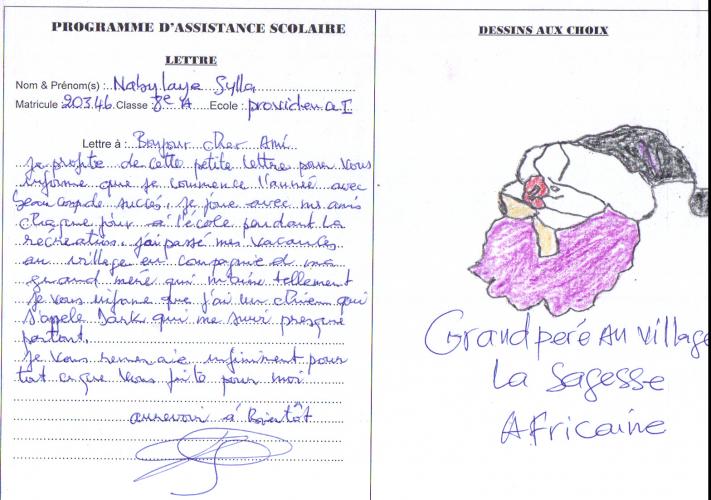 PROGRAMME D'ASSISTANCE SCOLAIRE
LETTRE
Nom & Prénom(s) : Nabylaye Sylla
Matricule 20346 Classe : 8e A Ecole : providence I
Lettre à : Bonjour cher Ami
Je profite de cette petite lettre pour vous
informe que je commence l'année avec
beau coup de succés. je joue avec mes amis
chaque jour a l'école pendant la
recréation. j'ai passé mes vacances
au village en compagnie de ma
grand méré qui m'aime tellement
Je vous informe que j'ai un chien qui
s'appele Dark qui me suivi presque
partout.
Je vous remercie infiniment pour
tout ce que vous faite pour moi
aurevoir à Bientôt
DESSINS AUX CHOIX
Grand peré AU village
La Sagesse
Africaine